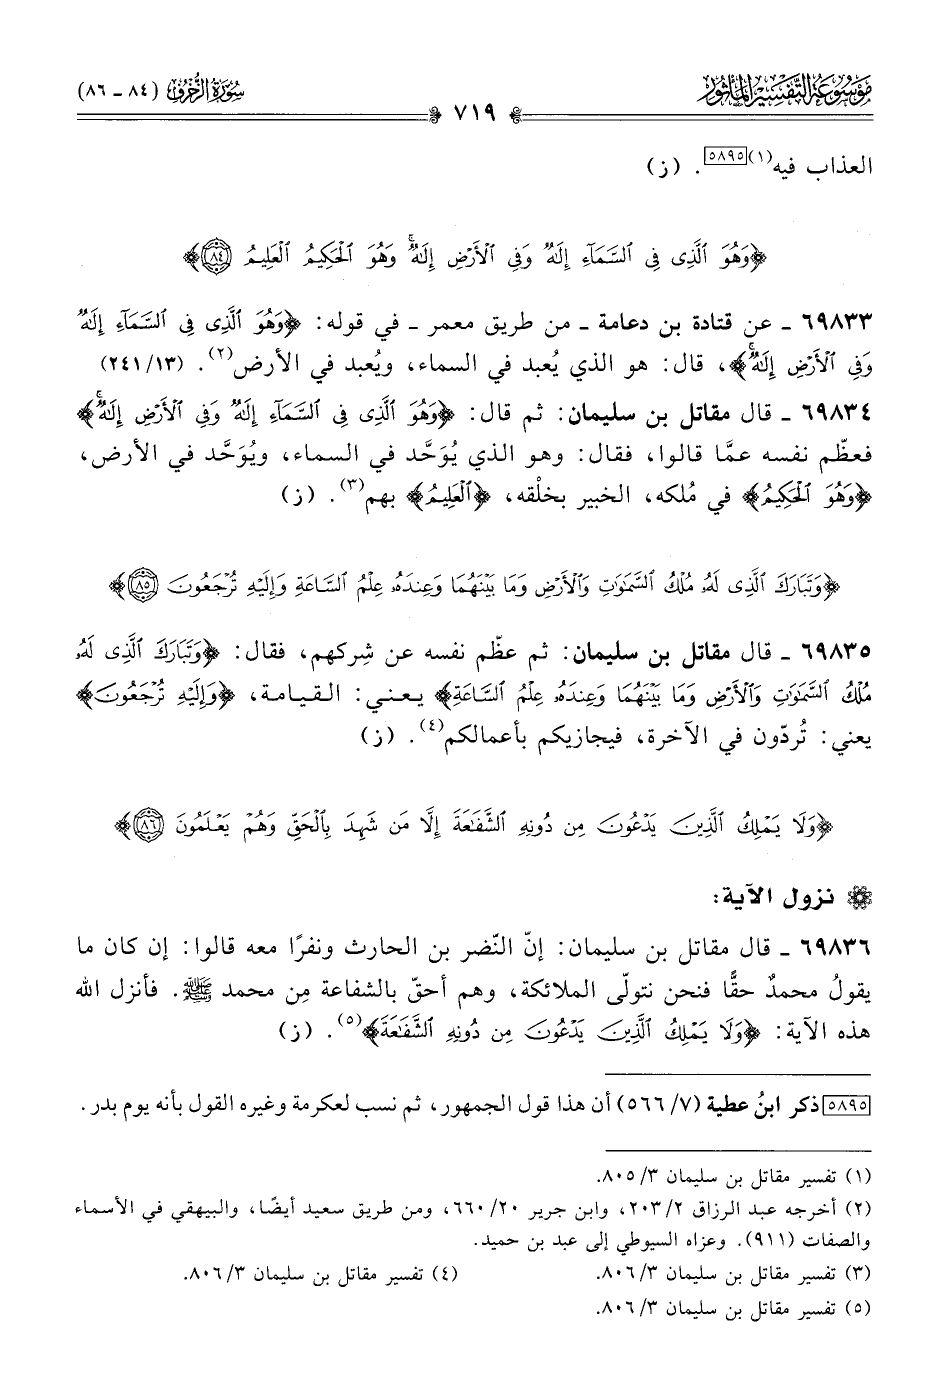 موسوعة التفسير المأثور
سورة الزخرف (٨٤ - ٨٦)
٧١٩
العذاب فيه(١)[٥٨٩٥]. (ز)
﴿وَهُوَ ٱلَّذِى فِى ٱلسَّمَآءِ إِلَٰهٌ وَفِى ٱلْأَرْضِ إِلَٰهٌ ۚ وَهُوَ ٱلْحَكِيمُ ٱلْعَلِيمُ ٨٤﴾
٦٩٨٣٣ ـ عن قتادة بن دعامة ـ من طريق معمر ـ في قوله: ﴿وَهُوَ ٱلَّذِى فِى ٱلسَّمَآءِ إِلَٰهٌ
وَفِى ٱلْأَرْضِ إِلَٰهٌ ۚ﴾، قال: هو الذي يُعبد في السماء، ويُعبد في الأرض(٢). (٢٤١/١٣)
٦٩٨٣٤ ـ قال مقاتل بن سليمان: ثم قال: ﴿وَهُوَ ٱلَّذِى فِى ٱلسَّمَآءِ إِلَٰهٌ وَفِى ٱلْأَرْضِ إِلَٰهٌ ۚ﴾
فعظّم نفسه عمَّا قالوا، فقال: وهو الذي يُوَحَّد في السماء، ويُوَحَّد في الأرض،
﴿وَهُوَ ٱلْحَكِيمُ﴾ في مُلكه، الخبير بخلْقه، ﴿ٱلْعَلِيمُ﴾ بهم(٣). (ز)
﴿وَتَبَارَكَ ٱلَّذِى لَهُۥ مُلْكُ ٱلسَّمَٰوَٰتِ وَٱلْأَرْضِ وَمَا بَيْنَهُمَا وَعِندَهُۥ عِلْمُ ٱلسَّاعَةِ وَإِلَيْهِ تُرْجَعُونَ ٨٥﴾
٦٩٨٣٥ ـ قال مقاتل بن سليمان: ثم عظّم نفسه عن شِركهم، فقال: ﴿وَتَبَارَكَ ٱلَّذِى لَهُۥ
مُلْكُ ٱلسَّمَٰوَٰتِ وَٱلْأَرْضِ وَمَا بَيْنَهُمَا وَعِندَهُۥ عِلْمُ ٱلسَّاعَةِ﴾ يعني: القيامة، ﴿وَإِلَيْهِ تُرْجَعُونَ﴾
يعني: تُردّون في الآخرة، فيجازيكم بأعمالكم(٤). (ز)
﴿وَلَا يَمْلِكُ ٱلَّذِينَ يَدْعُونَ مِن دُونِهِ ٱلشَّفَٰعَةَ إِلَّا مَن شَهِدَ بِٱلْحَقِّ وَهُمْ يَعْلَمُونَ ٨٦﴾
نزول الآية:
٦٩٨٣٦ ـ قال مقاتل بن سليمان: إنّ النّضر بن الحارث ونفرًا معه قالوا: إن كان ما
يقولُ محمدٌ حقًّا فنحن نتولّى الملائكة، وهم أحقّ بالشفاعة مِن محمد ﷺ. فأنزل الله
هذه الآية: ﴿وَلَا يَمْلِكُ ٱلَّذِينَ يَدْعُونَ مِن دُونِهِ ٱلشَّفَٰعَةَ﴾(٥). (ز)
[٥٨٩٥] ذكر ابنُ عطية (٧/ ٥٦٦) أن هذا قول الجمهور، ثم نسب لعكرمة وغيره القول بأنه يوم بدر.
(١) تفسير مقاتل بن سليمان ٣/ ٨٠٥.
(٢) أخرجه عبد الرزاق ٢/ ٢٠٣، وابن جرير ٢٠/ ٦٦٠، ومن طريق سعيد أيضًا، والبيهقي في الأسماء
والصفات (٩١١). وعزاه السيوطي إلى عبد بن حميد.
(٣) تفسير مقاتل بن سليمان ٣/ ٨٠٦.
(٤) تفسير مقاتل بن سليمان ٣/ ٨٠٦.
(٥) تفسير مقاتل بن سليمان ٣/ ٨٠٦.